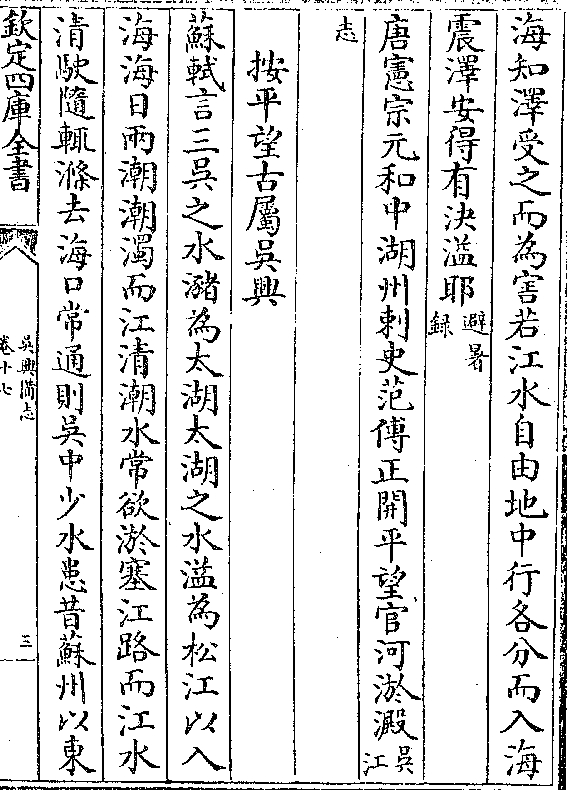 海知澤受之而為害若江水自由地中行各分而入海
震澤安得有決溢耶避暑録
唐憲宗元和中湖州刺史范傳正開平望官河淤澱吳江
志
按平望古屬吳興
蘇軾言三吳之水瀦為太湖太湖之水溢為松江以入
海海日兩潮潮濁而江清潮水常欲淤塞江路而江水
清駛隨輒滌去海口常通則吳中少水患昔蘇州以東
欽定四庫全書
吳興備志
卷十七
三